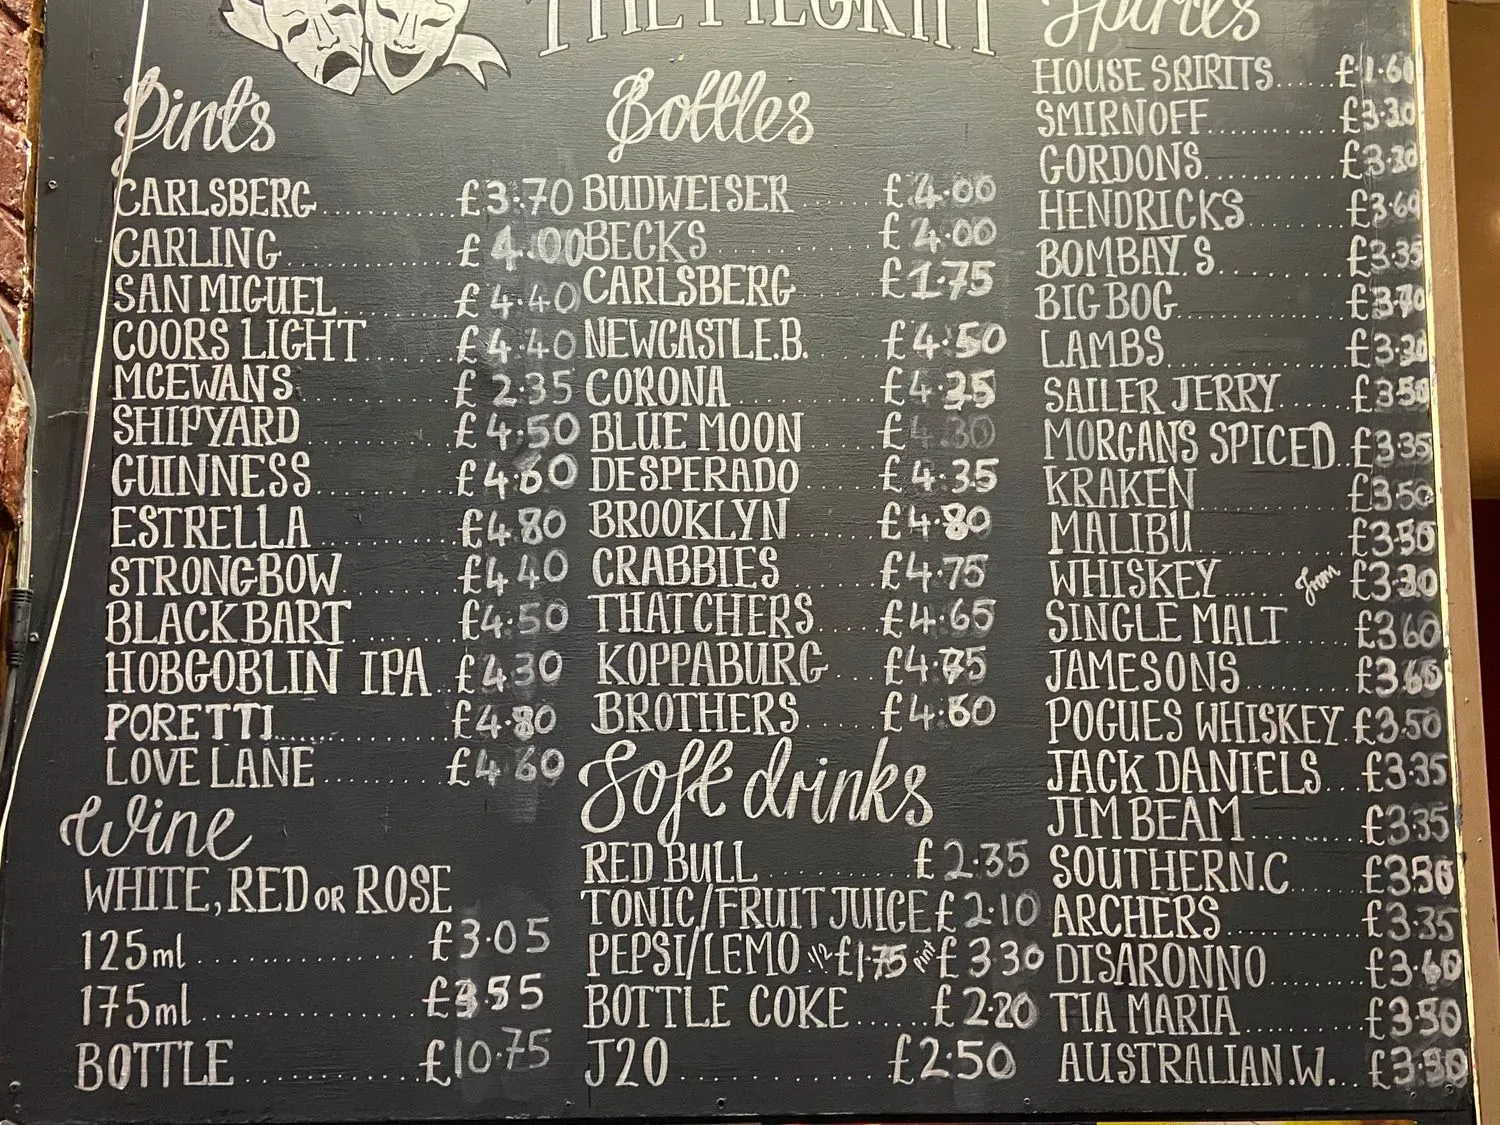 THE PILGRIM
Pints
CARLSBERG £3.70
CARLING £4.00
SAN MIGUEL £4.40
COORS LIGHT £4.40
MCEWANS £2.35
SHIPYARD £4.50
GUINNESS £4.60
ESTRELLA £4.80
STRONGBOW £4.40
BLACK BART £4.50
HOBGOBLIN IPA £4.30
PORETTI £4.80
LOVE LANE £4.60
Wine
WHITE, RED OR ROSE
125ml £3.05
175ml £3.55
BOTTLE £10.75
Bottles
BUDWEISER £4.00
BECKS £4.00
CARLSBERG £1.75
NEWCASTLE.B. £4.50
CORONA £4.25
BLUE MOON £4.30
DESPERADO £4.35
BROOKLYN £4.80
CRABBIES £4.75
THATCHERS £4.65
KOPPABURG £4.75
BROTHERS £4.60
Soft drinks
RED BULL £2.35
TONIC/FRUIT JUICE £2.10
PEPSI/LEMO 1/2 £1.75 pint £3.30
BOTTLE COKE £2.20
J20 £2.50
Spirits
HOUSE SRIRITS £1.60
SMIRNOFF £3.30
GORDONS £3.30
HENDRICKS £3.60
BOMBAY. S £3.35
BIG BOG £3.70
LAMBS £3.30
SAILER JERRY £3.50
MORGANS SPICED £3.35
KRAKEN £3.50
MALIBU £3.50
WHISKEY from £3.30
SINGLE MALT £3.60
JAMESONS £3.60
POGUES WHISKEY £3.50
JACK DANIELS £3.35
JIM BEAM £3.35
SOUTHERN.C £3.50
ARCHERS £3.35
DISARONNO £3.40
TIA MARIA £3.50
AUSTRALIAN.W. £3.50